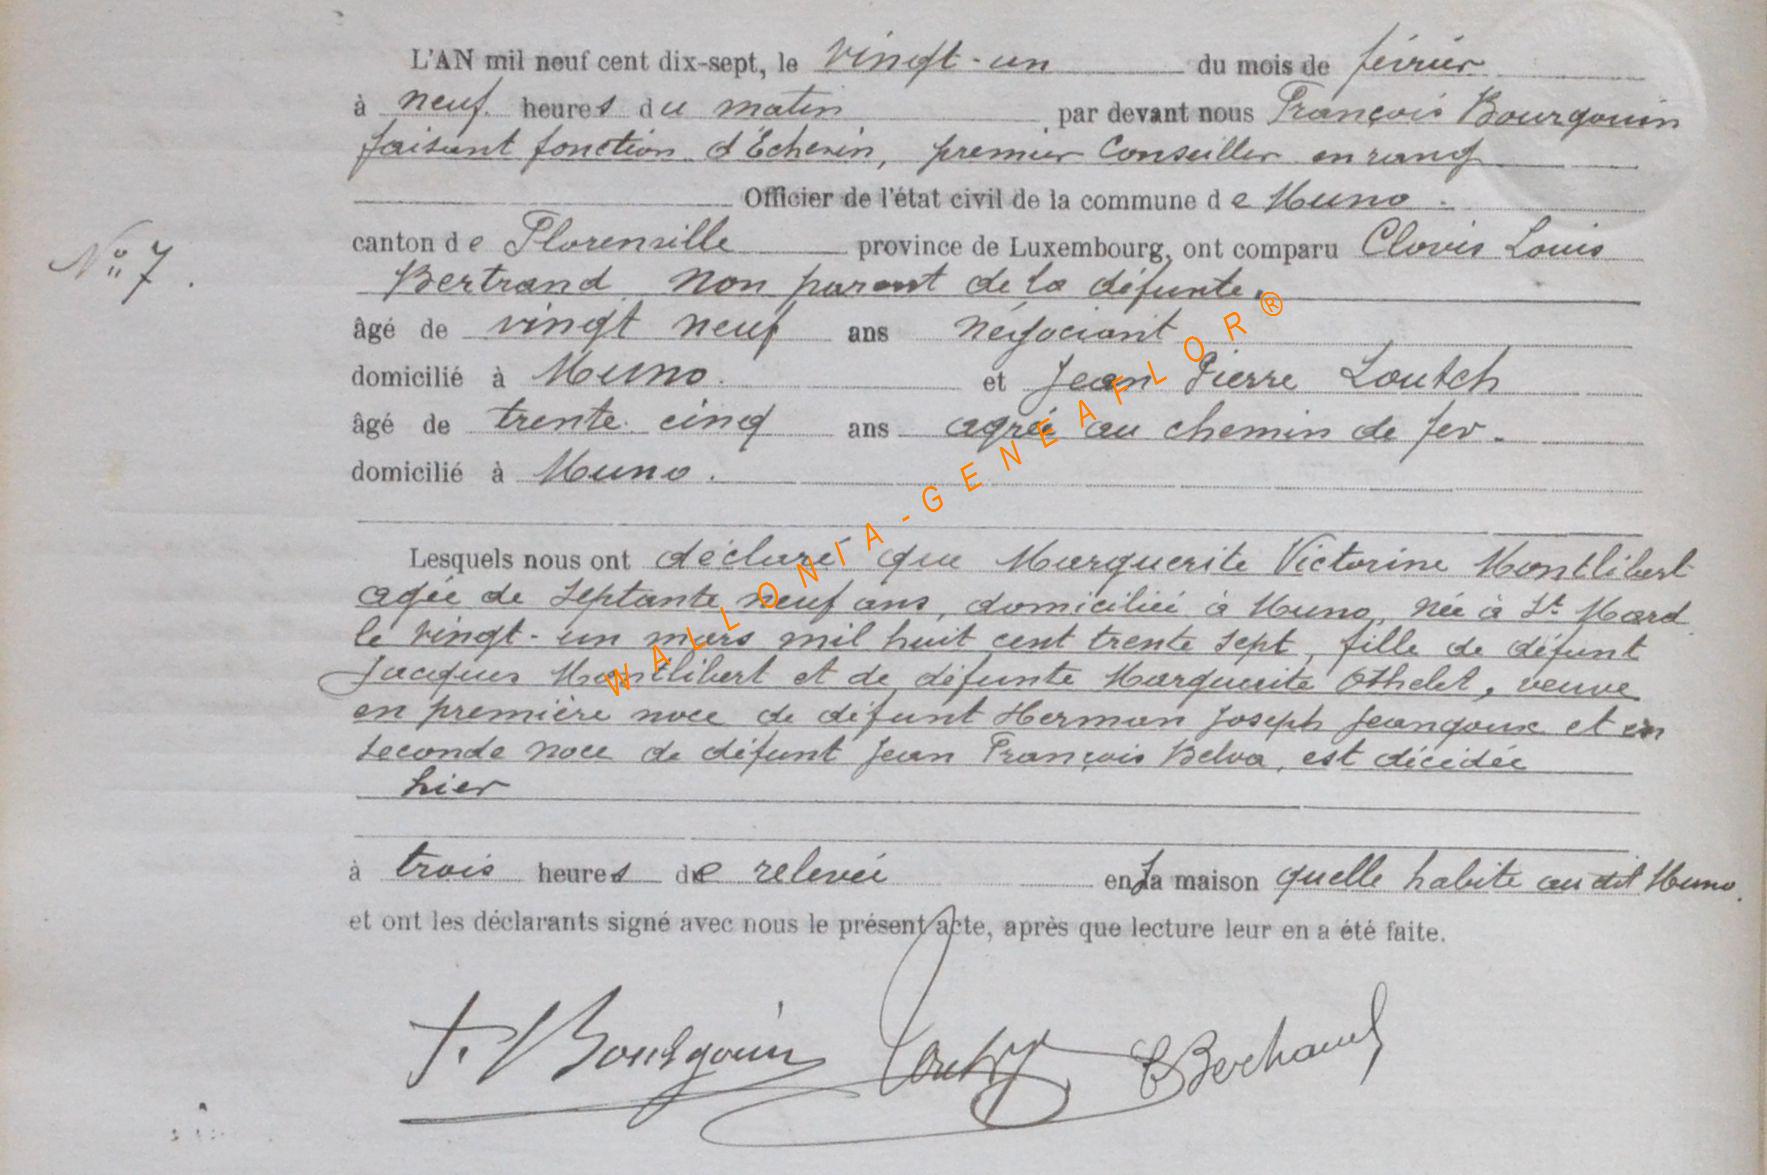 L'AN mil neuf cent dix-sept, le vingt-un du mois de février
à neuf heures du matin par devant nous François Bourgouin
faisant fonction d'Echevin, premier Conseiller en rang
Officier de l'état civil de la commune de Muno.
N° 7.
canton de Florenville province de Luxembourg, ont comparu Clovis Louis
Bertrand non parent de la défunte,
âgé de vingt neuf ans négociant
domicilié à Muno. et Jean Pierre Loutsch
âgé de trente cinq ans agréé au chemin de fer.
domicilié à Muno.
Lesquels nous ont déclaré que Marguerite Victorine Montlibert
agée de septante neuf ans, domiciliée à Muno, née à St. Mard
le vingt-un mars mil huit cent trente sept, fille de défunt
Jacques Montlibert et de défunte Marguerite Othelet, veuve
en première noce de défunt Herman Joseph Jeangoux et en
seconde noce de défunt Jean François Belva, est décédée
hier
à trois heures de relevée en la maison quelle habite au dit Muno.
et ont les déclarants signé avec nous le présent acte, après que lecture leur en a été faite.
F. Bourgouin Loutsch C Bertrand
WALLONIA-GENEAFLOR®